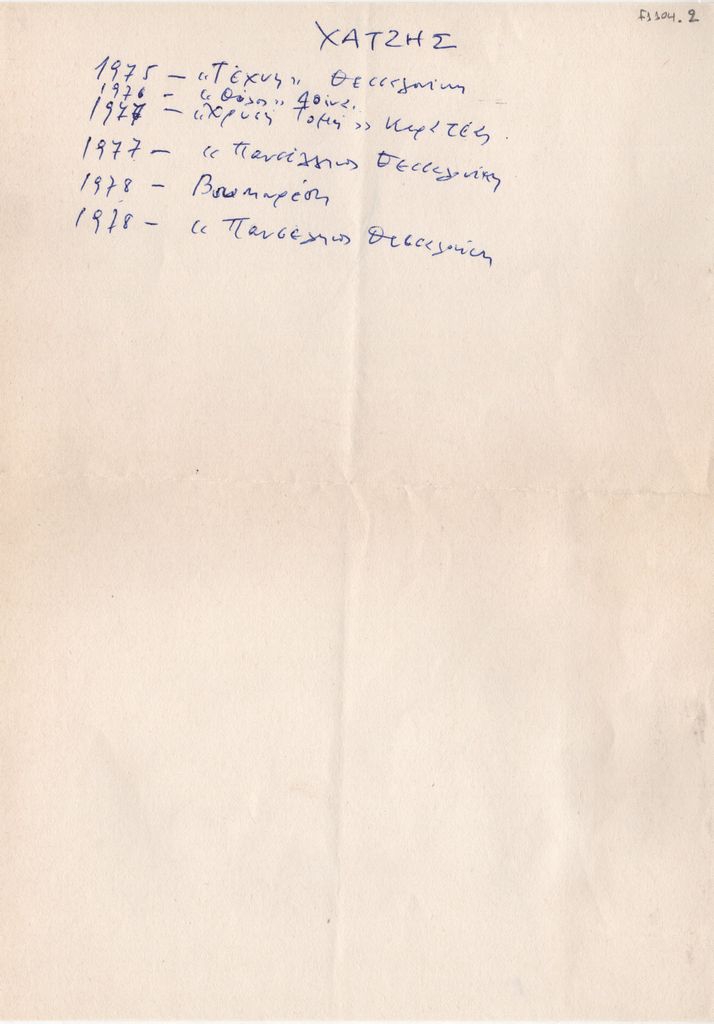 F1104.2
ΧΑΤΖΗΣ
1975 – «Τέχνη» Θεσσαλονίκη
1976 – «Θόλος» Αθήνα.
1977 – «Χρυσή Τομή»
1977 – « Πανσέληνος Θεσσαλονίκη
1978 – Βουκουρέστι
1978 – « Πανσέληνος Θεσσαλονίκη